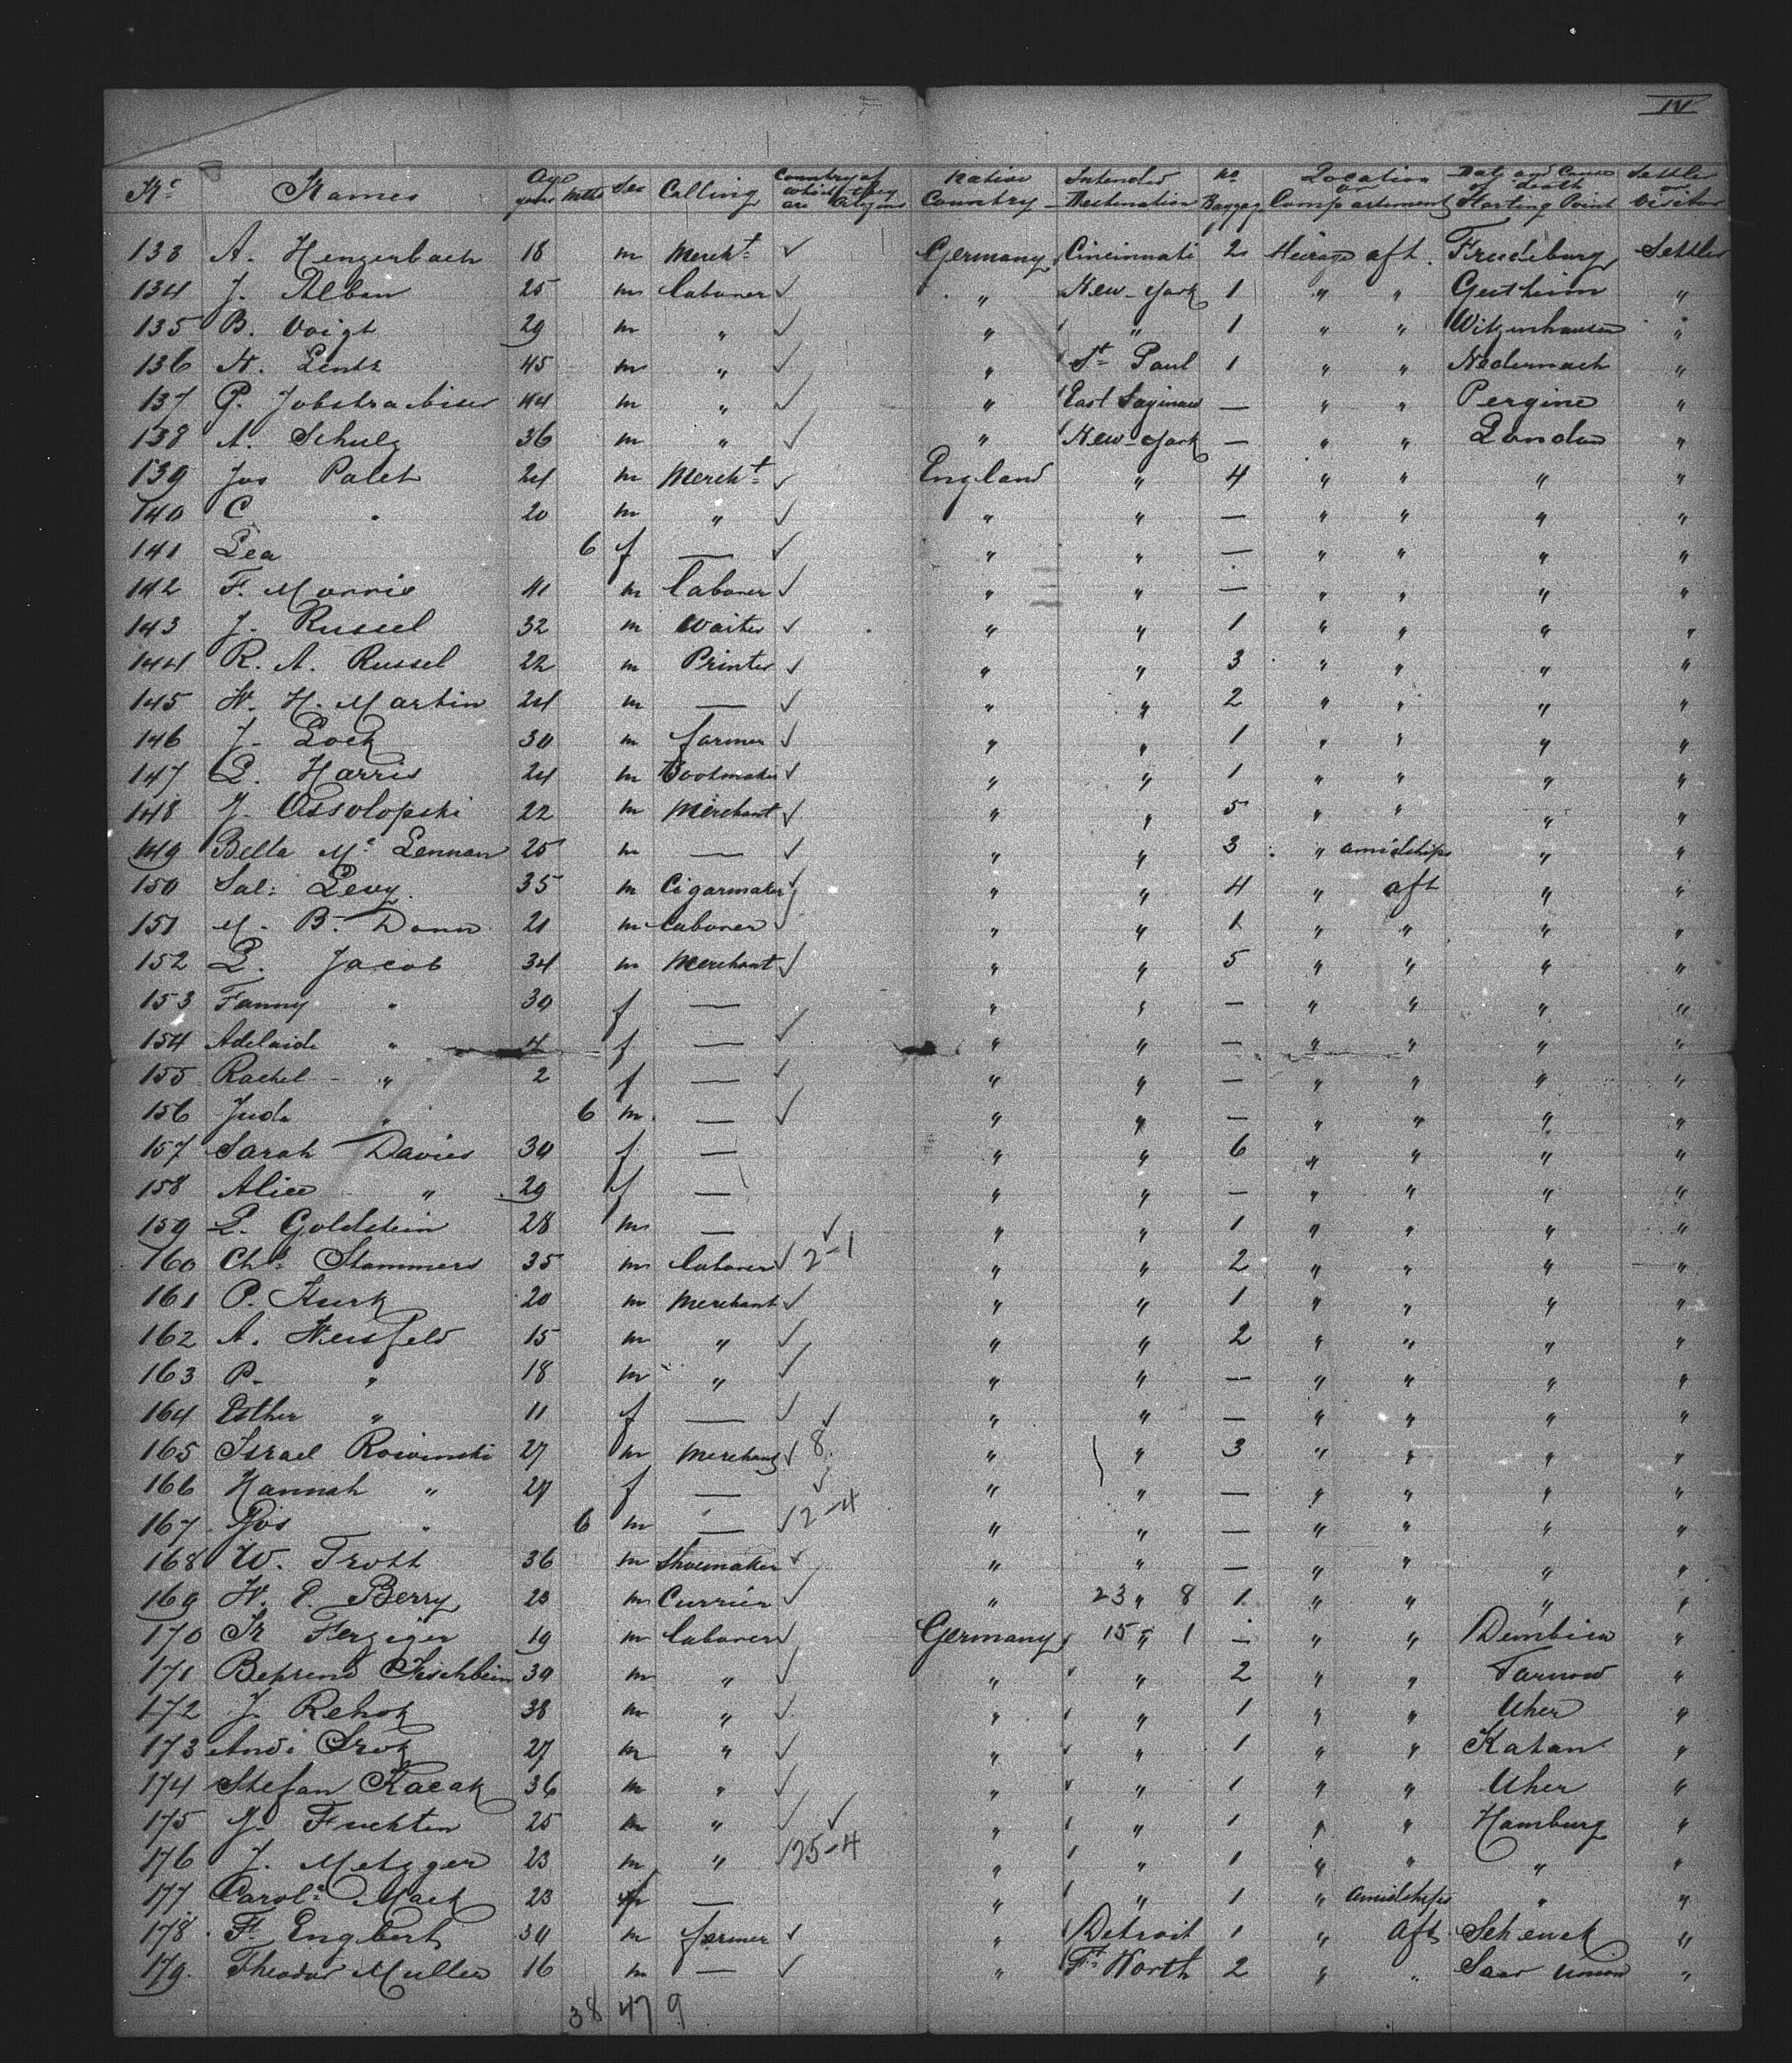 IV
No Names Age years Mths Sex Calling Country of which they are Citizens Native Country Intended Destination No Baggage Location or Compartement Date and Cause of death Starting Point Settler or Visitor
133 A. Hengerbach 18 m Mercht ✓ Germany Cincinnati 2 Steerage aft. Settler
134 J. Alban 25 m laborer ✓ " New-York 1 " " "
135 B. Voigt 29 m " ✓ " " 1 " " Witzenhausen "
136 N. Lentz 45 m " ✓ " St Paul 1 " " "
137 G. 44 m " ✓ " East Saginaw — " " Pergine "
138 A. Schulz 36 m " ✓ " New-York — " " London "
139 Jos Palet 24 m Mercht ✓ England " 4 " " " "
140 C " 20 m " ✓ " " — " " " "
141 Lea 6 f — ✓ " " — " " " "
142 F. Morris 41 m laborer ✓ " " — " " " "
143 J. Russel 32 m Waiter ✓ " " 1 " " " "
144 R. A. Russel 22 m Printer ✓ " " 3 " " " "
145 W. H. Martin 24 m — ✓ " " 2 " " " "
146 J. Lock 30 m farmer ✓ " " 1 " " " "
147 L. Harris 24 m Bootmaker ✓ " " 1 " " " "
148 J. Ossolopski 22 m Merchant ✓ " " 5 " " " "
149 Bella Mc Lennan 25 m — ✓ " " 3 " amidships " "
150 Sal: Levy 35 m Cigarmaker ✓ " " 4 " aft " "
151 M. B. Dann 21 m laborer ✓ " " 1 " " " "
152 L. Jacob 34 m Merchant ✓ " " 5 " " " "
153 Fanny " 30 f — " " — " " " "
154 Adelaide " 4 f — ✓ " " — " " " "
155 Rachel " 2 f — ✓ " " — " " " "
156 Jude " 6 m — ✓ " " — " " " "
157 Sarah Davies 30 f — " " 6 " " " "
158 Alice " 29 f — " " — " " " "
159 L. Goldstein 28 m — ✓ " " 1 " " " "
160 Chs Stammers 35 m laborer ✓ 2-1 " " 2 " " " "
161 P. Kurk 20 m Merchant ✓ " " 1 " " " "
162 A. Weisfeld 15 m " ✓ " " 2 " " " "
163 P. " 18 m " ✓ " " — " " " "
164 Esther " 11 f — ✓ ✓ " " — " " " "
165 Israel Rowinski 27 m Merchant ✓ 8 " " 3 " " " "
166 Hannah " 27 f — ✓ " " — " " " "
167 Jos " 6 m — ✓ 2-4 " " — " " " "
168 W. Trott 36 m Shoemaker ✓ " " — " " " "
169 W. E. Berry 23 m Currier ✓ " 23 " 8 1 " " " "
170 Fergiger 19 m laborer ✓ Germany 15 " 1 — " " Dembica "
171 Behrend Fischbein 30 m " ✓ " " 2 " " Tarnow "
172 J. Rehok 38 m " ✓ " " 1 " " Uher "
173 And: Srok 27 m " ✓ " " 1 " " Katan "
174 Stefan Kacak 36 m " ✓ " " 1 " " Uher "
175 J. Fuchten 25 m " ✓ ✓ " " 1 " " Hamburg "
176 J. Metzger 23 m " ✓ 25-4 " " 1 " " " "
177 Carole Mack 23 f — " " 1 " amidships " "
178 F. Engbert 30 m farmer ✓ " Detroit 1 " aft Scheuck "
179 Theodor Muller 16 m — ✓ " Ft Worth 2 " " Saar Union "
38 47 9